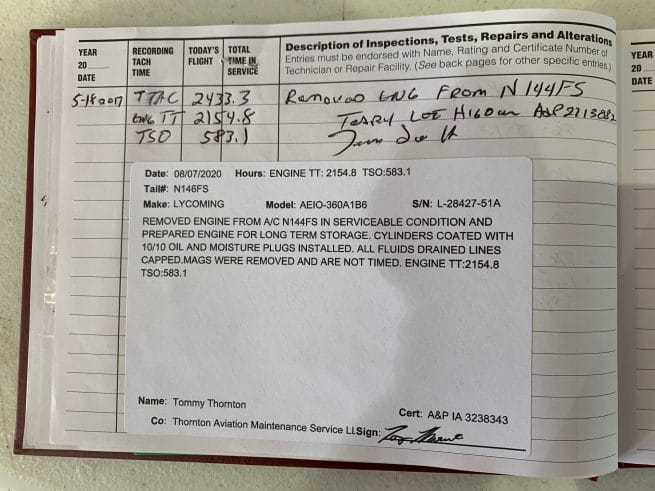 YEAR 20 DATE
RECORDING TACH TIME
TODAY'S FLIGHT
TOTAL TIME IN SERVICE
Description of Inspections, Tests, Repairs and Alterations
Entries must be endorsed with Name, Rating and Certificate Number of
Technician or Repair Facility. (See back pages for other specific entries.)
YEAR 20 DATE
TTAC 2433.3 Removed ENG From N144FS
ENG TT 2154.8 TERRY LEE A&P
TSO 583.1
Date: 08/07/2020 Hours: ENGINE TT: 2154.8 TSO:583.1
Tail#: N146FS
Make: LYCOMING Model: AEIO-360A1B6 S/N: L-28427-51A
REMOVED ENGINE FROM A/C N144FS IN SERVICEABLE CONDITION AND
PREPARED ENGINE FOR LONG TERM STORAGE. CYLINDERS COATED WITH
10/10 OIL AND MOISTURE PLUGS INSTALLED. ALL FLUIDS DRAINED LINES
CAPPED.MAGS WERE REMOVED AND ARE NOT TIMED. ENGINE TT:2154.8
TSO:583.1
Name: Tommy Thornton
Cert: A&P IA 3238343
Co: Thornton Aviation Maintenance Service LL Sign: